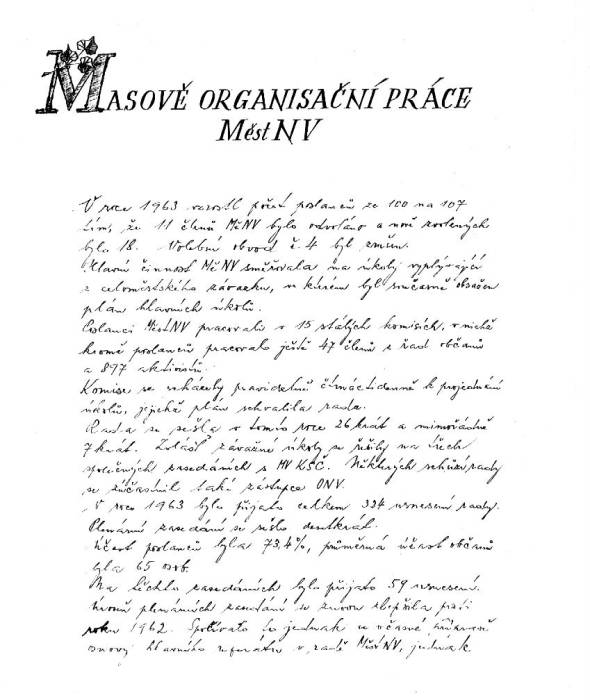 MASOVĚ ORGANISAČNÍ PRÁCE
MěstNV
V roce 1963 vzrostl počet poslanců ze 100 na 107
tím, že 11 členů MěNV bylo odvoláno a nově zvolených
bylo 18. Volební obvod č. 4 byl zrušen.
Hlavní činnost MěNV směřovala na úkoly vyplývající
z celoměstského závazku, ve kterém byl současně obsažen
plán hlavních úkolů.
Poslanci MěstNV pracovali v 15 stálých komisích, v nichž
kromě poslanců pracovalo ještě 47 členů z řad občanů
a 897 aktivistů.
Komise se scházely pravidelně čtrnáctidenně k projednání
úkolů, jejichž plán schválila rada.
Rada se sešla v tomto roce 26 krát a mimořádně
7 krát. Zvlášť závažné úkoly se řešily na třech
společných zasedáních s MV KSČ. Některých schůzí rady
se zúčastnil také zástupce ONV.
V roce 1963 bylo přijato celkem 324 usnesení rady.
Plenární zasedání se sešlo desetkrát.
Účast poslanců byla 73,4%, průměrná účast občanů
byla 65 osob.
Na těchto zasedáních bylo přijato 59 usnesení.
Úroveň plenárních zasedání se znovu zlepšila proti
roku 1962. Spočívalo to jednak ve včasné přípravě
osnovy hlavního referátu v radě MěstNV, jednak